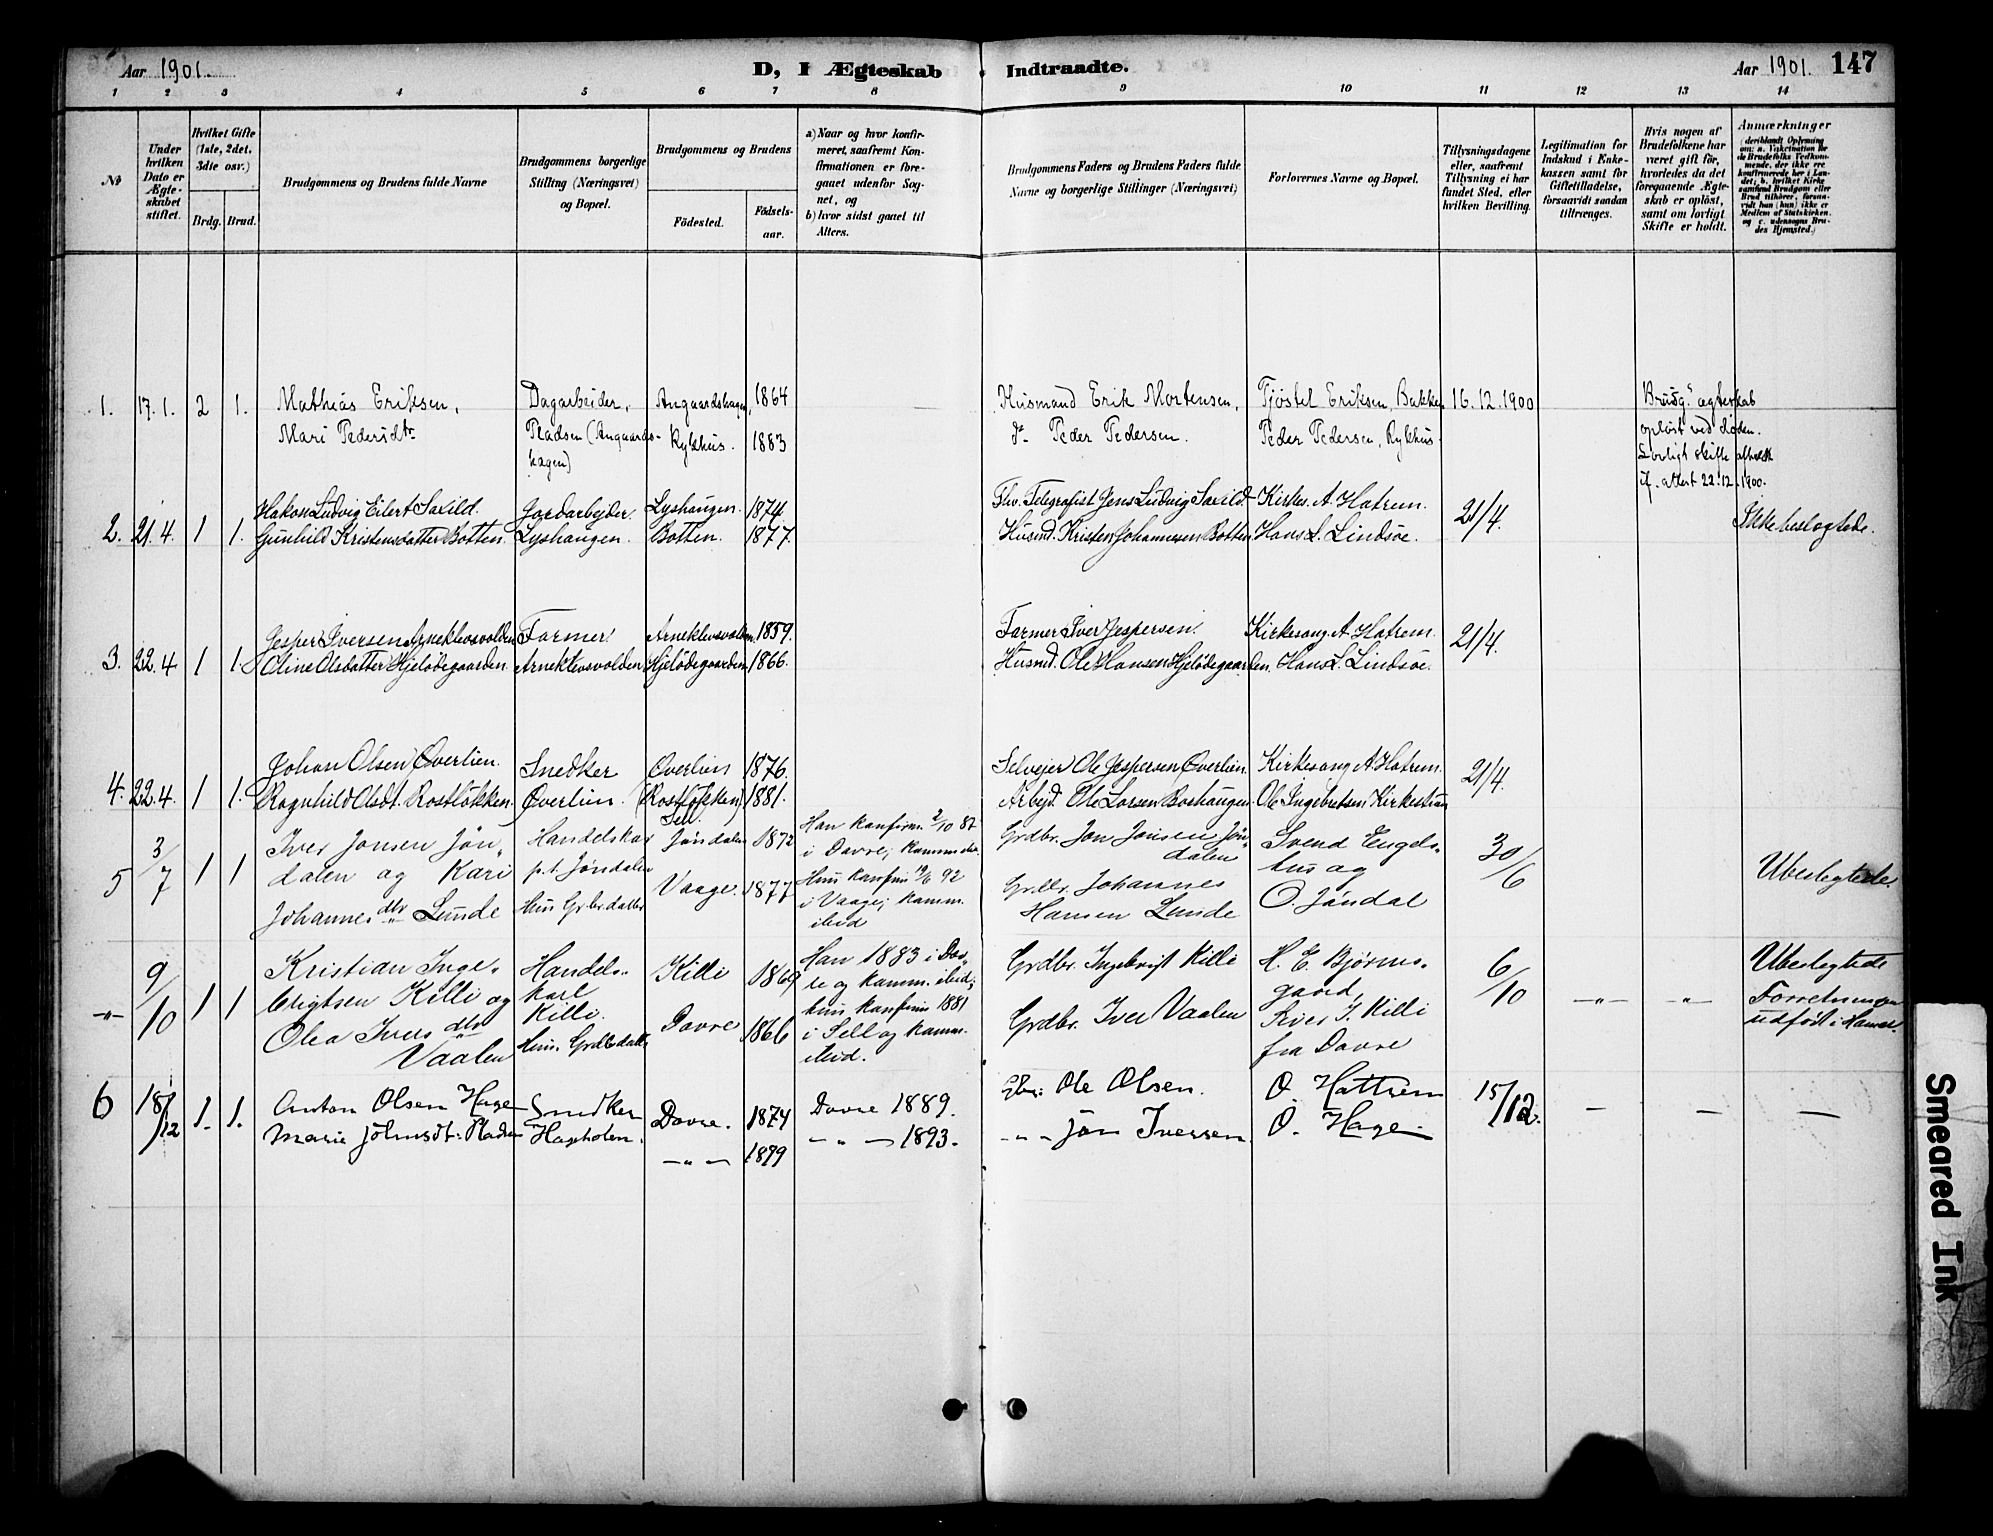 Aar 1901.
D, I Ægteskab Indtraadte.
Aar 1901. 147
1 2 3 4 5 6 7 8 9 10 11 12 13 14
No
Under hvilken Dato er Ægteskabet stiftet.
Hvilket Gifte (1ste, 2det, 3die osv.)
Brdg. Brud.
Brudgommens og Brudens fulde Navne
Brudgommens borgerlige Stilling (Næringsvei) og Bopæl.
Brudgommens og Brudens
Fødested.
Fødselsaar.
a) Naar og hvor konfirmeret, saafremt Konfirmationen er foregaaet udenfor Sognet, og
b) hvor sidst gaaet til Alters.
Brudgommens Faders og Brudens Faders fulde Navne og borgerlige Stillinger (Næringsvei)
Forlovernes Navne og Bopæl.
Tillysningsdagene eller, saafremt Tillysning ei har fundet Sted, efter hvilken Bevilling.
Legitimation for Indskud i Enkekassen samt for Giftetilladelse, forsaavidt saadan tiltrænges.
Hvis nogen af Brudefolkene har været gift før, hvorledes da det foregaaende Ægteskab er opløst, samt om lovligt Skifte er holdt.
Anmærkninger
(deriblandt Oplysning om: a. Vakcination for de Brudefolks Vedkommende, der ikke ere konfirmerede her i Landet; b. hvilket Kirkesamfund Brudgom eller Brud tilhører, forsaavidt han (hun) ikke er Medlem af Statskirken, og c. udensogns Brudes Hjemsted.)
1. 17.1. 2 1. Mathias Eriksen, Dagarbeider, Angaardshagen, 1864 Husmand Erik Mortensen, Tjøstel Eriksen, Bakken 16.12.1900 Brudg.s ægteskab
Mari Pedersdtr Pladsen (Angaards- Rykhus. 1883 do Peder Pedersen. Peder Pedersen, Rykhus opløst ved døden.
hagen) Lovligt skifte afholdt
if. attest 22.12.1900.
Hakon Ludvig Eilert Saxild. Jordarbejder. Lyshaugen. 1874 Fhv. Telegrafist Jens Ludvig Saxild. Kirkes. A. Hatrem. 21/4. Ikke beslægtede.
2. 21.4 1 1. Gunhild Kristensdatter Botten. Lyshaugen. Botten. 1877. Husmd. Kristen Johannesen Botten. Hans L. Lindsøe.
Jesper Iversen Arneklevsvolden Farmer Arneklevsvolden. 1859. Farmer Iver Jespersen. Kirkesang. A. Hatrem. 21/4.
3. 22.4 1 1. Oline Olsdatter Hjelødegaarden. Arneklevsvolden. Hjelødegaarden. 1866. Husmd. Ole Hansen Hjelødegaarden. Hans L. Lindsøe.
Johan Olsen Øverlien. Snedker Øverlien 1876. Selvejer Ole Jespersen Øverlien. Kirkesang A. Hatrem. 21/4.
4. 22.4. 1 1. Ragnhild Olsdt. Rostløkken. Øverlien. (Rostløkken) 1881. Arbejd. Ole Larsen Boshaugen Ole Ingebretsen Kirkestuen
Sell.
3/7 Iver Jonsen Jøn- Handelskar Jøndalen 1872 Han konfirm. 2/10 87 Grdbr. Jon Jonsen Jøn- Svend Engels- 30/6
5 1 1 dalen og Kari p.t. Jøndalen i Dovre; komm. ibd. dalen hus og Ubeslegtede.
Johannesdtr Lunde Hun Grbr.datter Vaage. 1877 Hun konfirm 92 Grdbr. Johannes O. Jøndal
i Vaage; komm. Hansen Lunde
ibid
9/10 Kristian Inge- Handels- Killi 1869 Han 1883 i Dov- Grdbr. Ingebrigt Killi H. E. Bjørns- 6/10 Ubeslegtede
-"- 1 1 brigtsen Killi og karl re og komm. ibid; gaard, -"- -"- Forretningen
Olea Iversdtr Killi. Dovre 1866 hun konfirm 1881 Grdbr. Iver Vaalen Iver I. Killi udført i Hamar.
Vaalen Hun. Grdbr.datter i Sell og komm. fra Dovre
ibid.
6 18/12 1. 1. Anton Olsen Hage Snedker Dovre. 1874 Dovre 1889. Gbr: Ole Olsen. O. Hattrem 15/12. — — —
Marie Johnsdt: Pladsen Hageholen. -"- 1879 -"- 1893. -"- Jøn Iversen. O. Hage
Smeared Ink